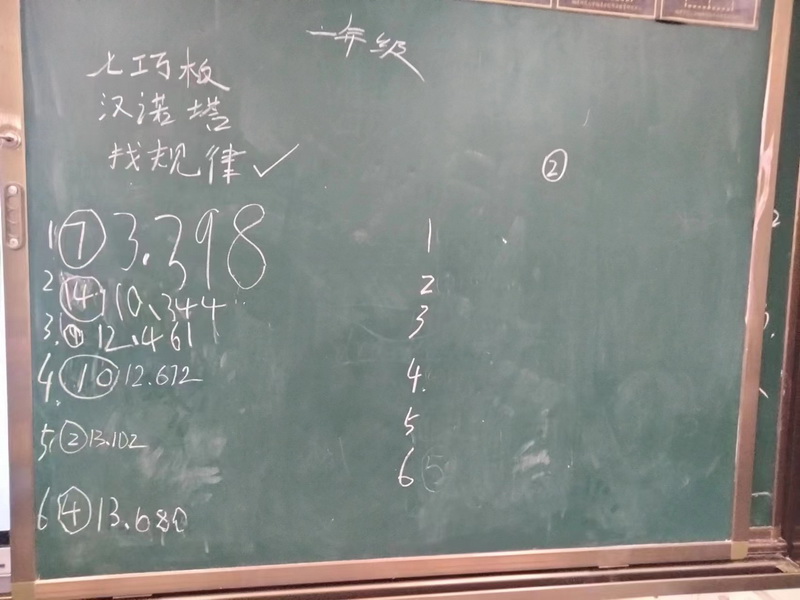 一年级
七巧板
汉诺塔
找规律✓
②
1 ⑦ 3.398
2 ⑭ 10、344
3. 12.461
4. ⑩ 12.672
5 ② 13.102
6 ④ 13.680
1
2
3
4.
5
6 ⑤